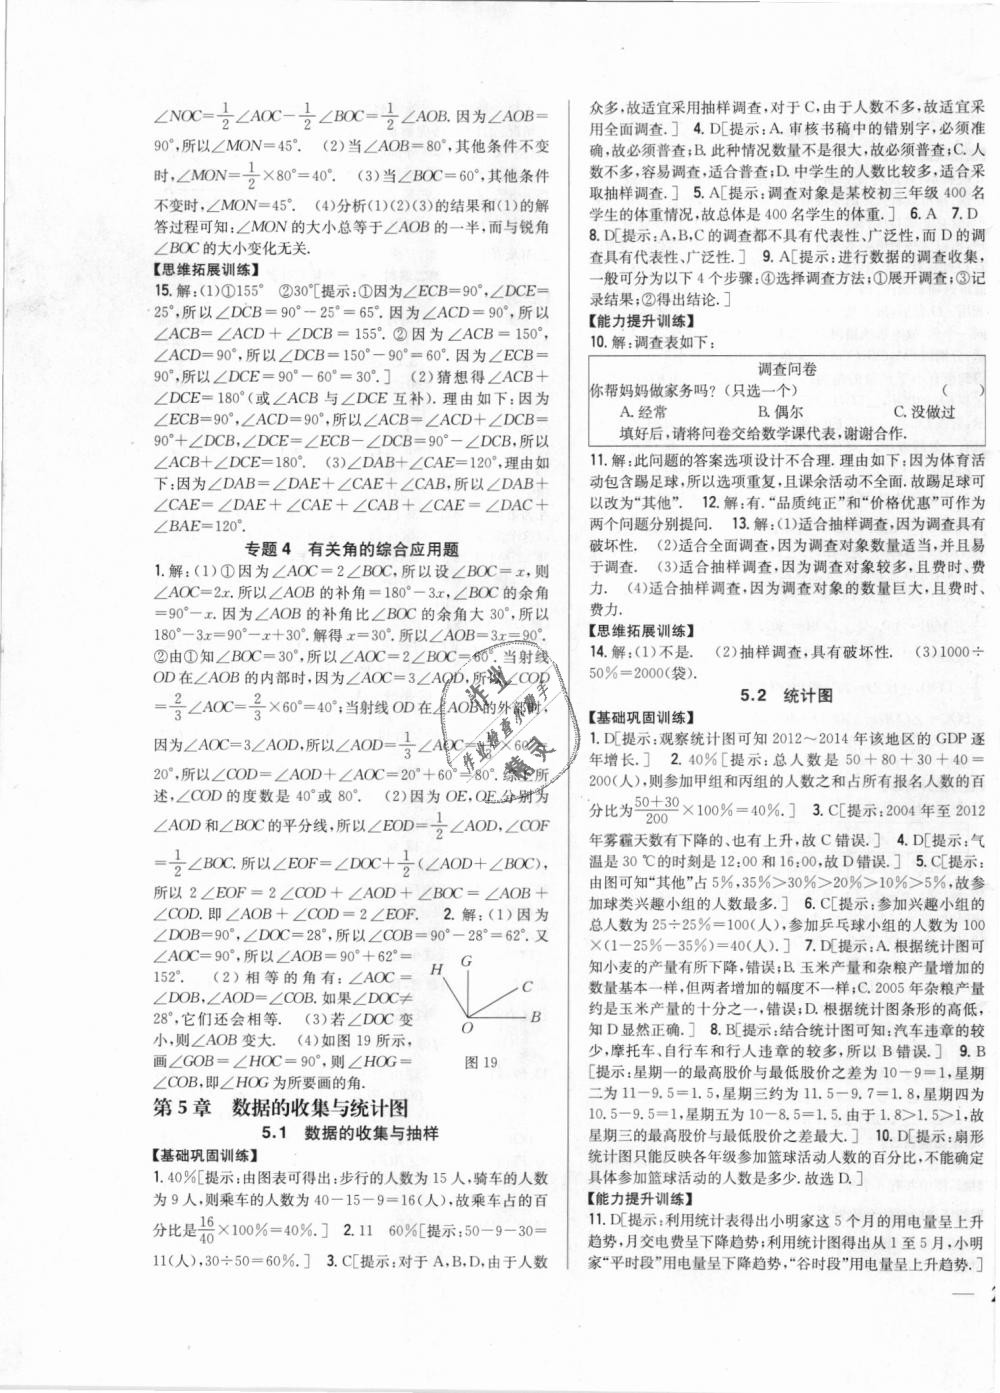 ∠NOC=1/2∠AOC-1/2∠BOC=1/2∠AOB. 因为∠AOB=
90°,所以∠MON=45°. (2)当∠AOB=80°,其他条件不变
时,∠MON=1/2×80°=40°. (3)当∠BOC=60°,其他条件
不变时,∠MON=45°. (4)分析(1)(2)(3)的结果和(1)的解
答过程可知:∠MON的大小总等于∠AOB的一半,而与锐角
∠BOC的大小变化无关.
【思维拓展训练】
15.解:(1)①155° ②30°[提示:①因为∠ECB=90°,∠DCE=
25°,所以∠DCB=90°-25°=65°. 因为∠ACD=90°,所以
∠ACB=∠ACD+∠DCB=155°. ②因为∠ACB=150°,
∠ACD=90°,所以∠DCB=150°-90°=60°. 因为∠ECB=
90°,所以∠DCE=90°-60°=30°.] (2)猜想得∠ACB+
∠DCE=180°(或∠ACB与∠DCE互补). 理由如下:因为
∠ECB=90°,∠ACD=90°,所以∠ACB=∠ACD+∠DCB=
90°+∠DCB,∠DCE=∠ECB-∠DCB=90°-∠DCB,所以
∠ACB+∠DCE=180°. (3)∠DAB+∠CAE=120°,理由如
下:因为∠DAB=∠DAE+∠CAE+∠CAB,所以∠DAB+
∠CAE=∠DAE+∠CAE+∠CAB+∠CAE=∠DAC+
∠BAE=120°.
专题4 有关角的综合应用题
1.解:(1)①因为∠AOC=2∠BOC,所以设∠BOC=x,则
∠AOC=2x. 所以∠AOB的补角=180°-3x,∠BOC的余角
=90°-x. 因为∠AOB的补角比∠BOC的余角大30°,所以
180°-3x=90°-x+30°. 解得x=30°. 所以∠AOB=3x=90°.
②由①知∠BOC=30°,所以∠AOC=2∠BOC=60°. 当射线
OD在∠AOB的内部时,因为∠AOC=3∠AOD,所以∠COD
=2/3∠AOC=2/3×60°=40°;当射线OD在∠AOB的外部时,
因为∠AOC=3∠AOD,所以∠AOD=1/3∠AOC=1/3×60°=
20°,所以∠COD=∠AOD+∠AOC=20°+60°=80°. 综上所
述,∠COD的度数是40°或80°. (2)因为OE,OF分别为
∠AOD和∠BOC的平分线,所以∠EOD=1/2∠AOD,∠COF
=1/2∠BOC. 所以∠EOF=∠DOC+1/2(∠AOD+∠BOC),
所以2∠EOF=2∠COD+∠AOD+∠BOC=∠AOB+
∠COD. 即∠AOB+∠COD=2∠EOF. 2.解:(1)因为
∠DOB=90°,∠DOC=28°,所以∠COB=90°-28°=62°. 又
∠AOC=90°,所以∠AOB=90°+62°=
152°. (2)相等的角有:∠AOC=
∠DOB,∠AOD=∠COB. 如果∠DOC≠
28°,它们还会相等. (3)若∠DOC变
小,则∠AOB变大. (4)如图19所示,
画∠GOB=∠HOC=90°,则∠HOG=
∠COB,即∠HOG为所要画的角.
H
G
C
O
B
图19
第5章 数据的收集与统计图
5.1 数据的收集与抽样
【基础巩固训练】
1.40%[提示:由图表可得出:步行的人数为15人,骑车的人数
为9人,则乘车的人数为40-15-9=16(人),故乘车占的百
分比是16/40×100%=40%.] 2.11 60%[提示:50-9-30=
11(人),30÷50=60%.] 3.C[提示:对于A,B,D,由于人数
众多,故适宜采用抽样调查,对于C,由于人数不多,故适宜采
用全面调查.] 4.D[提示:A.审核书稿中的错别字,必须准
确,故必须普查;B.此种情况数量不是很大,故必须普查;C.人
数不多,容易调查,适合普查;D.中学生的人数比较多,适合采
取抽样调查.] 5.A[提示:调查对象是某校初三年级400名
学生的体重情况,故总体是400名学生的体重.] 6.A 7.D
8.D[提示:A,B,C的调查都不具有代表性、广泛性,而D的调
查具有代表性、广泛性.] 9.A[提示:进行数据的调查收集,
一般可分为以下4个步骤:④选择调查方法;①展开调查;③记
录结果;②得出结论.]
【能力提升训练】
10.解:调查表如下:
调查问卷
你帮妈妈做家务吗?(只选一个) ( )
A.经常 B.偶尔 C.没做过
填好后,请将问卷交给数学课代表,谢谢合作.
11.解:此问题的答案选项设计不合理. 理由如下:因为体育活
动包含踢足球,所以选项重复,且课余活动不全面. 故踢足球可
以改为“其他”. 12.解:有.“品质纯正”和“价格优惠”可作为
两个问题分别提问. 13.解:(1)适合抽样调查,因为调查具有
破坏性. (2)适合全面调查,因为调查对象数量适当,并且易
于调查. (3)适合抽样调查,因为调查对象较多,且费时、费
力. (4)适合抽样调查,因为调查对象的数量巨大,且费时、
费力.
【思维拓展训练】
14.解:(1)不是. (2)抽样调查,具有破坏性. (3)1000÷
50%=2000(袋).
5.2 统计图
【基础巩固训练】
1.D[提示:观察统计图可知2012~2014年该地区的GDP逐
年增长.] 2.40%[提示:总人数是50+80+30+40=
200(人),则参加甲组和丙组的人数之和占所有报名人数的百
分比为50+30/200×100%=40%.] 3.C[提示:2004年至2012
年雾霾天数有下降的、也有上升,故C错误.] 4.D[提示:气
温是30 ℃的时刻是12:00和16:00,故D错误.] 5.C[提示:
由图可知“其他”占5%,35%>30%>20%>10%>5%,故参
加球类兴趣小组的人数最多.] 6.C[提示:参加兴趣小组的
总人数为25÷25%=100(人),参加乒乓球小组的人数为100
×(1-25%-35%)=40(人).] 7.D[提示:A.根据统计图可
知小麦的产量有所下降,错误;B.玉米产量和杂粮产量增加的
数量基本一样,但两者增加的幅度不一样;C.2005年杂粮产量
约是玉米产量的十分之一,错误;D.根据统计图条形的高低,
知D显然正确.] 8.B[提示:结合统计图可知:汽车违章的较
少,摩托车、自行车和行人违章的较多,所以B错误.] 9.B
[提示:星期一的最高股价与最低股价之差为10-9=1,星期
二为11-9.5=1.5,星期三约为11.5-9.7=1.8,星期四为
10.5-9.5=1,星期五为10-8.5=1.5. 由于1.8>1.5>1,故
星期三的最高股价与最低股价之差最大.] 10.D[提示:扇形
统计图只能反映各年级参加篮球活动人数的百分比,不能确定
具体参加篮球活动的人数是多少. 故选D.]
【能力提升训练】
11.D[提示:利用统计表得出小明家这5个月的用电量呈上升
趋势,月交电费呈下降趋势;利用统计图得出从1至5月,小明
家“平时段”用电量呈下降趋势,“谷时段”用电量呈上升趋势.]
作业
作业检查小助手
精灵